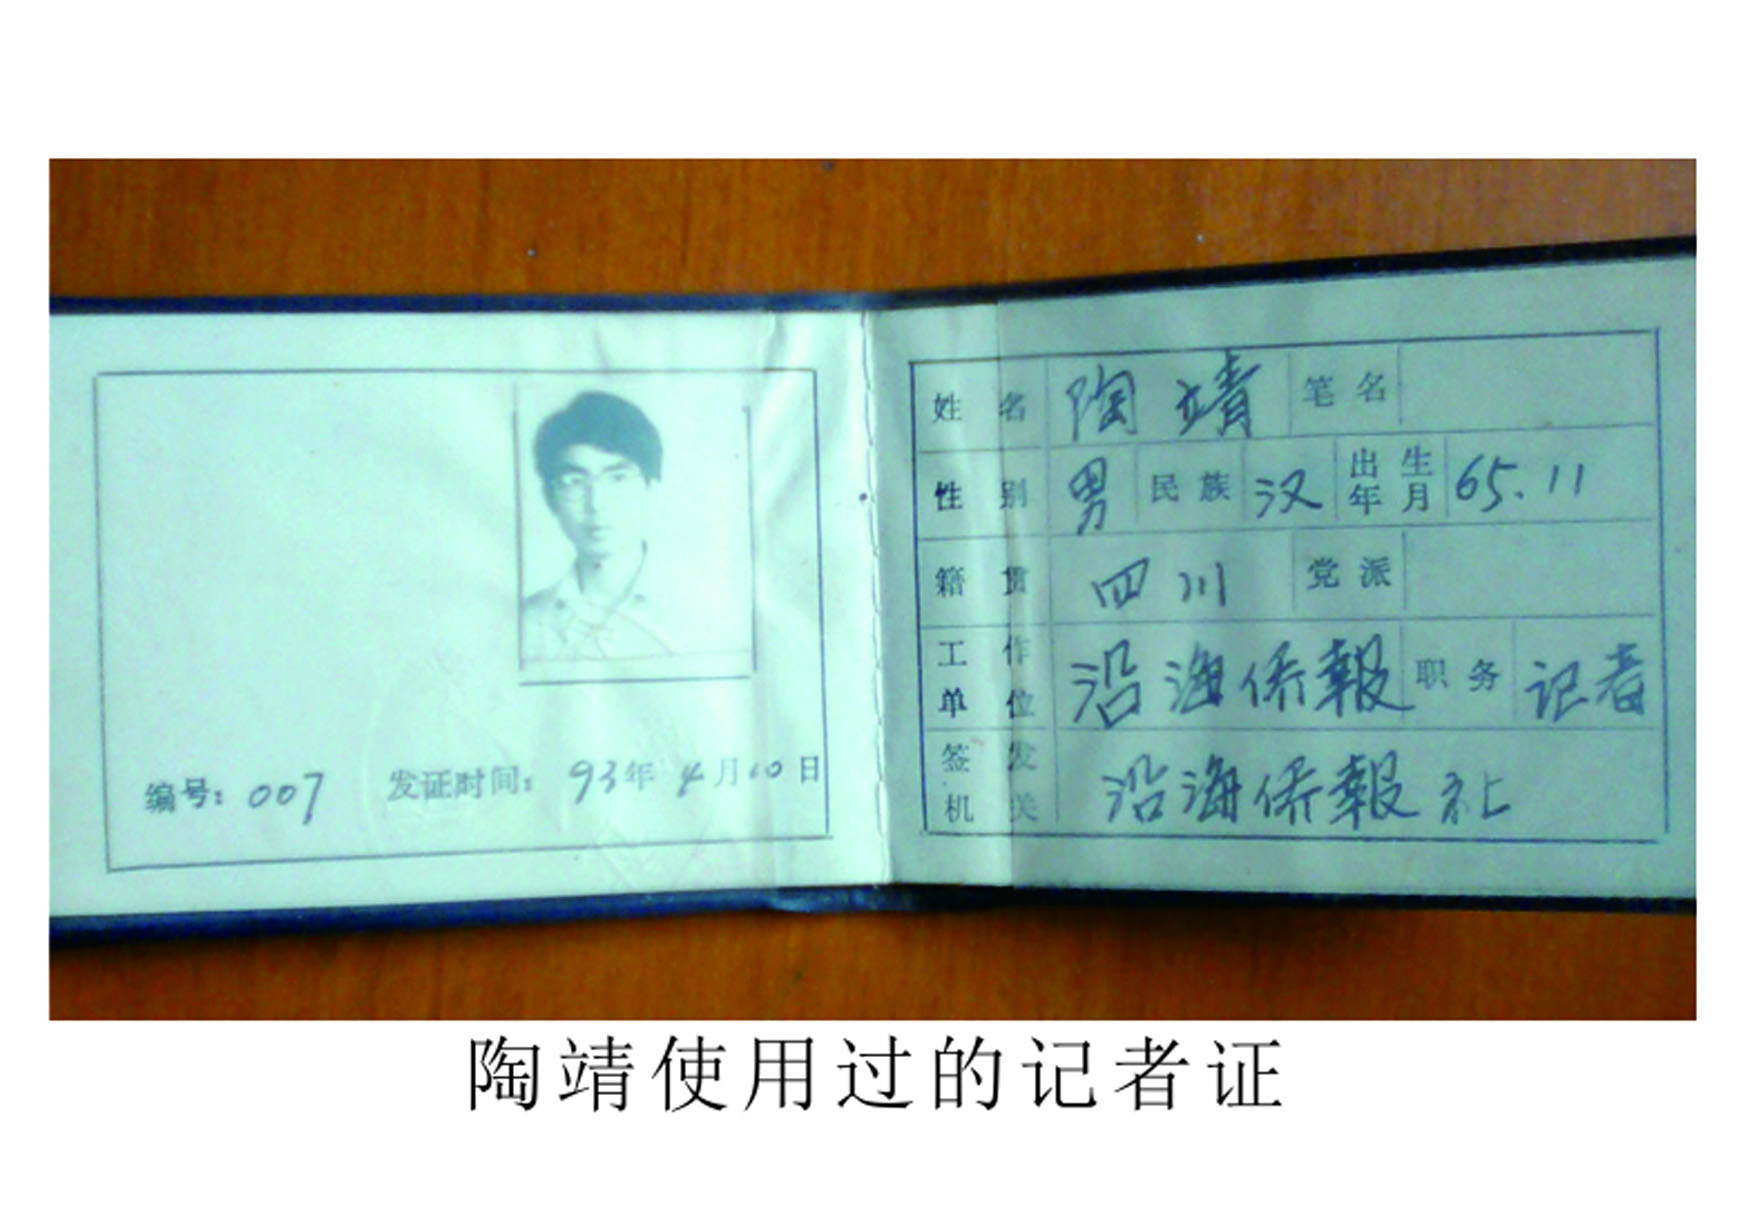 编号：007 发证时间：93年4月10日
姓名 陶靖 笔名
性别 男 民族 汉 出生年月 65.11
籍贯 四川 党派
工作单位 沿海侨報 职务 记者
签发机关 沿海侨報社
陶靖使用过的记者证